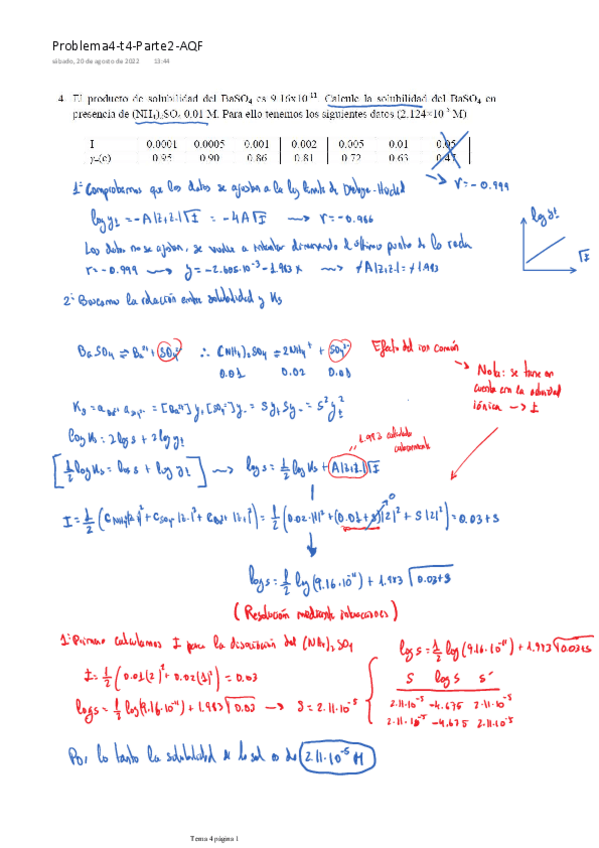 Problema4-t4-Parte2-AQF
sábado, 20 de agosto de 2022 13:44
4. El producto de solubilidad del BaSO4 es 9.16x10⁻¹¹. Calcule la solubilidad del BaSO4 en
presencia de (NH4)2SO4 0.01 M. Para ello tenemos los siguientes datos (2.124×10⁻⁵ M)
I 0.0001 0.0005 0.001 0.002 0.005 0.01 0.05
γ±(c) 0.95 0.90 0.86 0.81 0.72 0.63 0.47
r = -0.999
1º Comprobamos que los datos se ajustan a la ley límite de Debye-Hückel
log γ± = -A|z₁z₂|√I = -4A√I → r = -0.966
log γ±
√I
Los datos no se ajustan, se vuelve a intentar eliminando el último punto de la recta
r = -0.999 → y = -2.605·10⁻³ - 1.983 x → +A|z₁z₂| = +1.983
2º Buscamos la relación entre solubilidad y Ks
BaSO4 ⇌ Ba²⁺ + SO4²⁻ ∴ (NH4)2SO4 ⇌ 2NH4⁺ + SO4²⁻ Efecto del ion común
0.01 0.02 0.01
Nota: se tiene en
cuenta con la
iónica → I
Ks = a a = [Ba²⁺]γ± [SO4²⁻]γ± = Sγ± Sγ± = S²γ±²
log Ks = 2 log s + 2 log γ±
1.983 calculado
[½ log Ks = log s + log γ±] → log s = ½ log Ks + A|z₁z₂|√I
I = ½ (C NH4⁺|z|² + C SO4²⁻|z|² + C Ba²⁺|z|²) = ½ (0.02·|1|² + (0.01+s)|2|² + s|2|²) = 0.03 + s
0
log s = ½ log (9.16·10⁻¹¹) + 1.983 √0.03+s
(Resolución mediante iteraciones)
1º Primero calculamos I para la disociación del (NH4)2SO4
I = ½ (0.01(2)² + 0.02(1)²) = 0.03
log s = ½ log (9.16·10⁻¹¹) + 1.983 √0.03 → S = 2.11·10⁻⁵
log s = ½ log (9.16·10⁻¹¹) + 1.983 √0.03+s
S log S S'
2.11·10⁻⁵ -4.675 2.11·10⁻⁵
2.11·10⁻⁵ -4.675 2.11·10⁻⁵
Por lo tanto la solubilidad de la sal es de 2.11·10⁻⁵ M
Tema 4 página 1